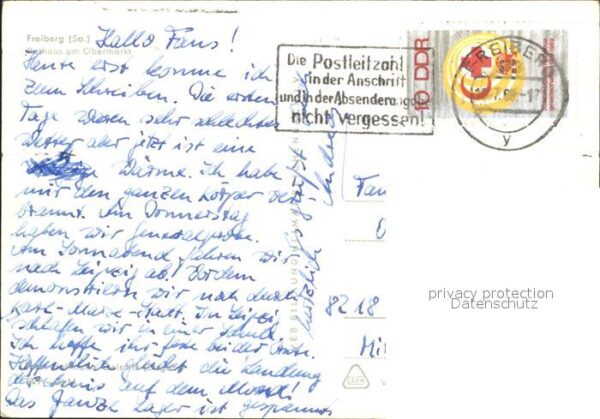 Freiberg (Sa.)
Rathaus am Obermarkt
Hallo Fans!
Heute erst komme ich
zum Schreiben. Die ersten
Tage waren sehr schlechtes
Wetter aber jetzt ist eine
Wärme. Ich habe
mir den ganzen Körper ver
brannt. Am Donnerstag
haben wir Generalprobe.
Am Sonnabend fahren wir
nach Leipzig ab. Vordem
demonstrieren wir noch durch
Karl-Marx-Stadt. In Leipzi
schlafen wir in einer Schule.
Ich hoffe ihr
Hoffentlich glückt die Landung
auf dem Mond!
Das ganze Lager ist gespannt
Herzlich grüßt
Andreas
Die Postleitzahl
in der Anschrift
und in der Absenderangabe
nicht vergessen!
10 DDR
FREIBERG
y
Fam
8218
Mit
privacy protection
Datenschutz